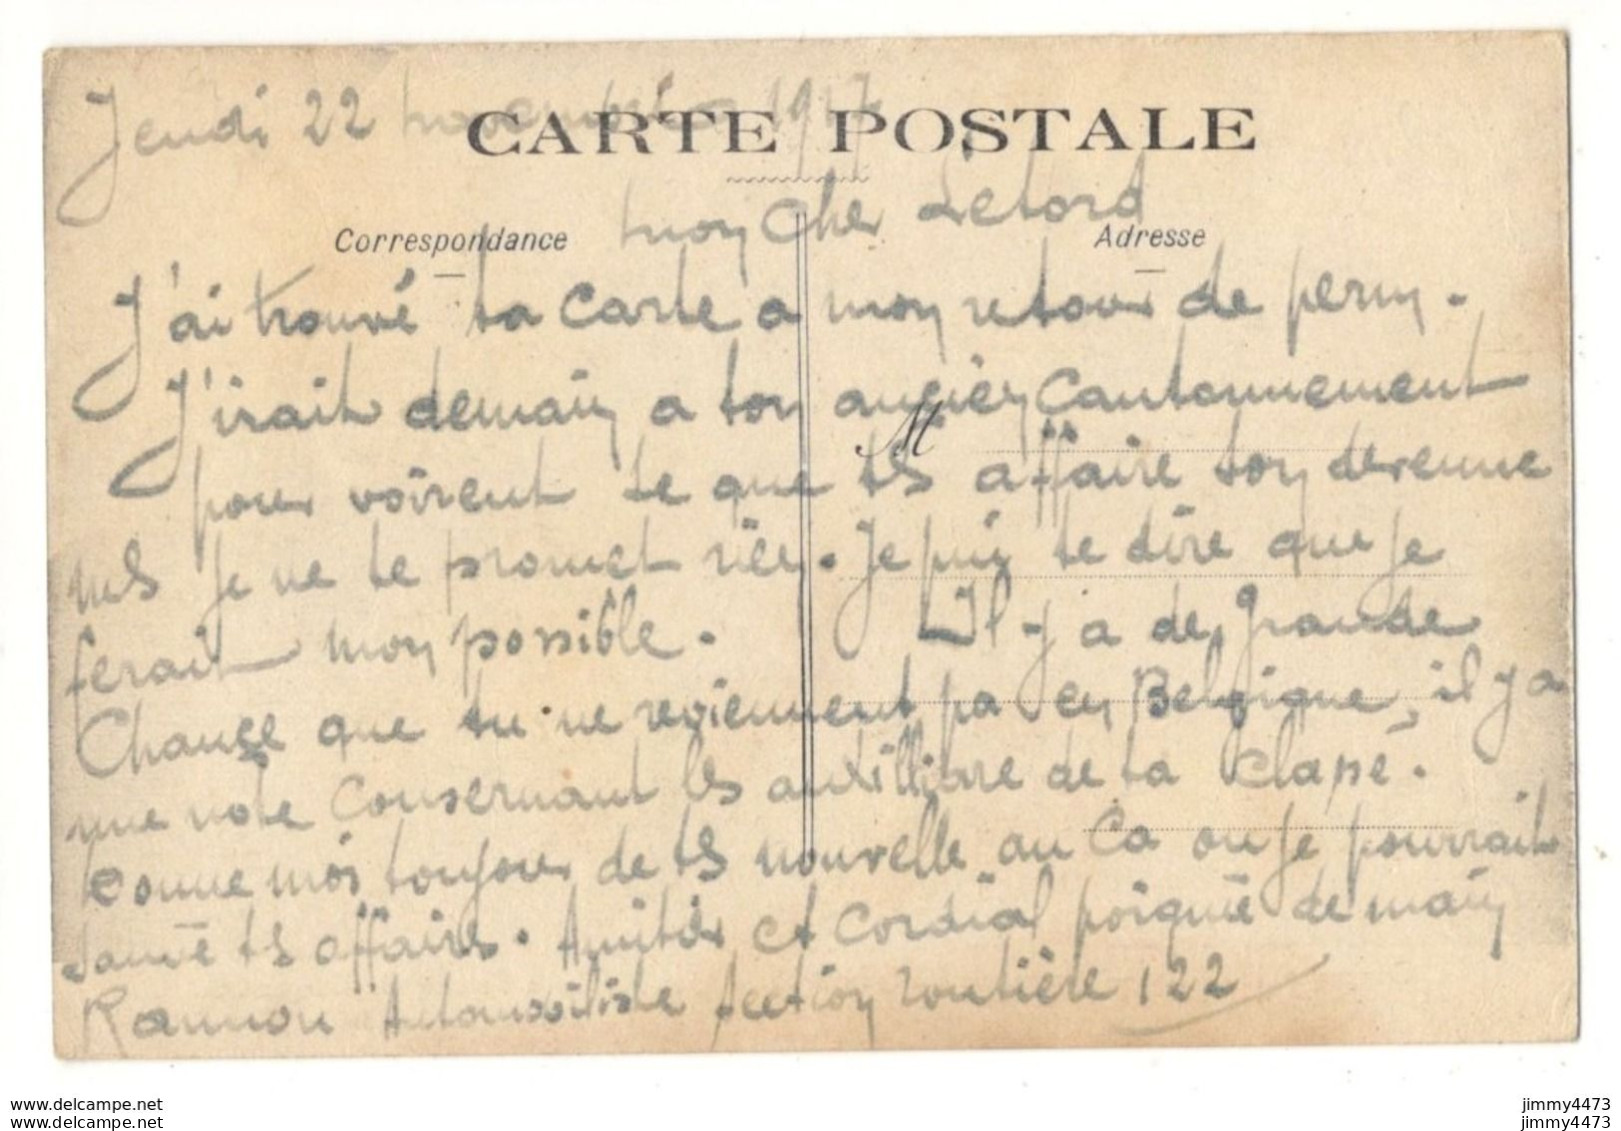 Jeudi 22 novembre 1917
CARTE POSTALE
Mon Cher Letord
Correspondance
Adresse
J'ai trouvé ta Carte a mon retour de perm.
J'irait demain a ton ancien Cantonnement
M
pour voirent se que tes affaire son devenue
mes je ne te promet rien. Je puis te dire que je
ferait mon possible. Il y a de grande
Chance que tu ne reviennent pa en Belgique, il y a
une note Consernant les auxillibre de ta Clase.
Donne moi toujour de tes nouvelle au Ca ou je pourrait
sauvé tes affaire. Amitier et Cordial poignée de main
Rannou Automobiliste section routière 122
delcampe.net
delcampe.net
jimmy4473
jimmy4473